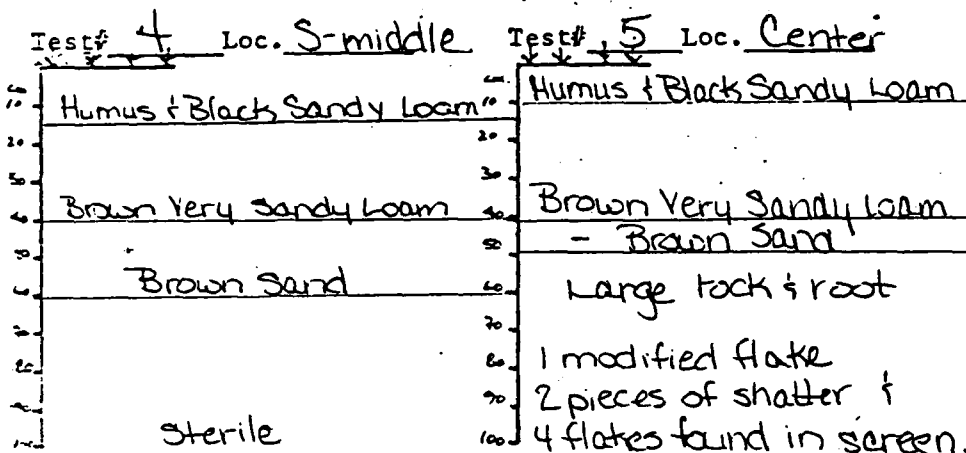 Test# 4 Loc. S-middle
cm
10
Humus & Black Sandy Loam
20
30
40
Brown Very Sandy Loam
50
Brown Sand
60
70
80
90
100
Sterile
Test# 5 Loc. Center
cm.
10
Humus & Black Sandy Loam
20
30
40
Brown Very Sandy Loam
50
- Brown Sand
60
Large rock & root
70
80
1 modified flake
90
2 pieces of shatter &
100
4 flakes found in screen.